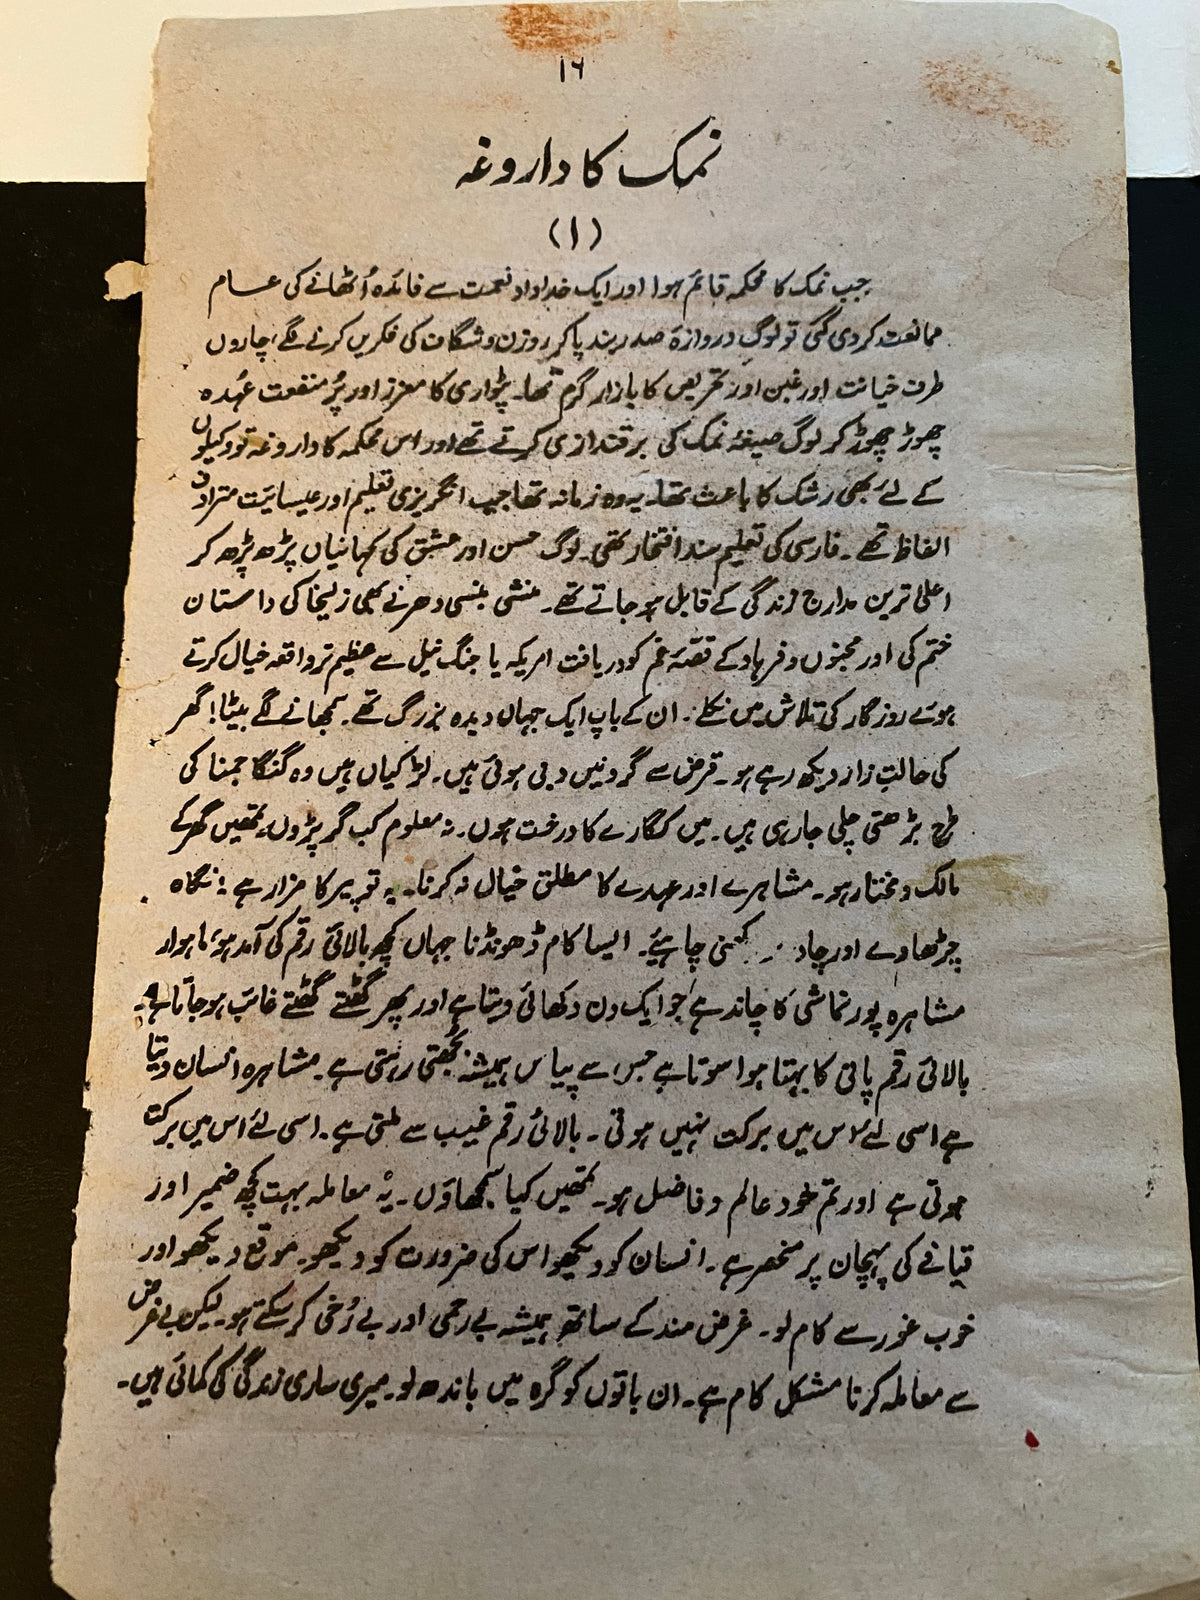 ۱۶
نمک کا داروغہ
(۱)
جب نمک کا محکمہ قائم ہوا اور ایک خداداد نعمت سے فائدہ اُٹھانے کی عام
ممانعت کردی گئی تو لوگ دروازۂ صدر بند پا کر روزن و شگاف کی فکریں کرنے لگے، چاروں
طرف خیانت اور غبن اور تحریص کا بازار گرم تھا۔ پٹواری کا معزز اور پُر منفعت عُہدہ
چھوڑ چھوڑ کر لوگ صیغۂ نمک کی برقندازی کرتے تھے اور اس محکمہ کا داروغہ تو وکیلوں
کے لئے بھی رشک کا باعث تھا۔ یہ وہ زمانہ تھا جب انگریزی تعلیم اور عیسائیت مترادف
الفاظ تھے۔ فارسی کی تعلیم سند افتخار تھی۔ لوگ حسن اور عشق کی کہانیاں پڑھ پڑھ کر
اعلیٰ ترین مدارج زندگی کے قابل ہو جاتے تھے۔ منشی بنسی دھر نے بھی زلیخا کی داستان
ختم کی اور مجنوں و فرہاد کے قصّۂ غم کو دریافت امریکہ یا جنگ نیل سے عظیم تر واقعہ خیال کرتے
ہوئے روزگار کی تلاش میں نکلے۔ ان کے باپ ایک جہاں دیدہ بزرگ تھے۔ سمجھانے لگے بیٹا! گھر
کی حالتِ زار دیکھ رہے ہو۔ قرض سے گردنیں دبی ہوئی ہیں۔ لڑکیاں ہیں وہ گنگا جمنا کی
طرح بڑھتی چلی جا رہی ہیں۔ میں کگارے کا درخت ہوں۔ نہ معلوم کب گر پڑوں، تمھیں گھر کے
مالک و مختار ہو۔ مشاہرے اور عہدے کا مطلق خیال نہ کرنا۔ یہ تو پیر کا مزار ہے۔ نگاہ
چڑھاوے اور چاد رکھنی چاہئے۔ ایسا کام ڈھونڈنا جہاں کچھ بالائی رقم کی آمد ہو، ماہوار
مشاہرہ پورنماشی کا چاند ہے جو ایک دن دکھائی دیتا ہے اور پھر گھٹتے گھٹتے غائب ہو جاتا ہے۔
بالائی رقم پانی کا بہتا ہوا سوتا ہے جس سے پیاس ہمیشہ بُجھتی رہتی ہے۔ مشاہرہ انسان دیتا
ہے اسی لئے اس میں برکت نہیں ہوتی۔ بالائی رقم غیب سے ملتی ہے۔ اسی لئے اس میں برکت
ہوتی ہے اور تم خود عالم و فاضل ہو۔ تمھیں کیا سمجھاؤں۔ یہ معاملہ بہت کچھ ضمیر اور
قیافے کی پہچان پر منحصر ہے۔ انسان کو دیکھو اس کی ضرورت کو دیکھو۔ موقع دیکھو اور
خوب غور سے کام لو۔ غرض مند کے ساتھ ہمیشہ بے رحمی اور بے رُخی کر سکتے ہو۔ لیکن بے غرض
سے معاملہ کرنا مشکل کام ہے۔ ان باتوں کو گرہ میں باندھ لو۔ میری ساری زندگی کی کمائی ہیں۔